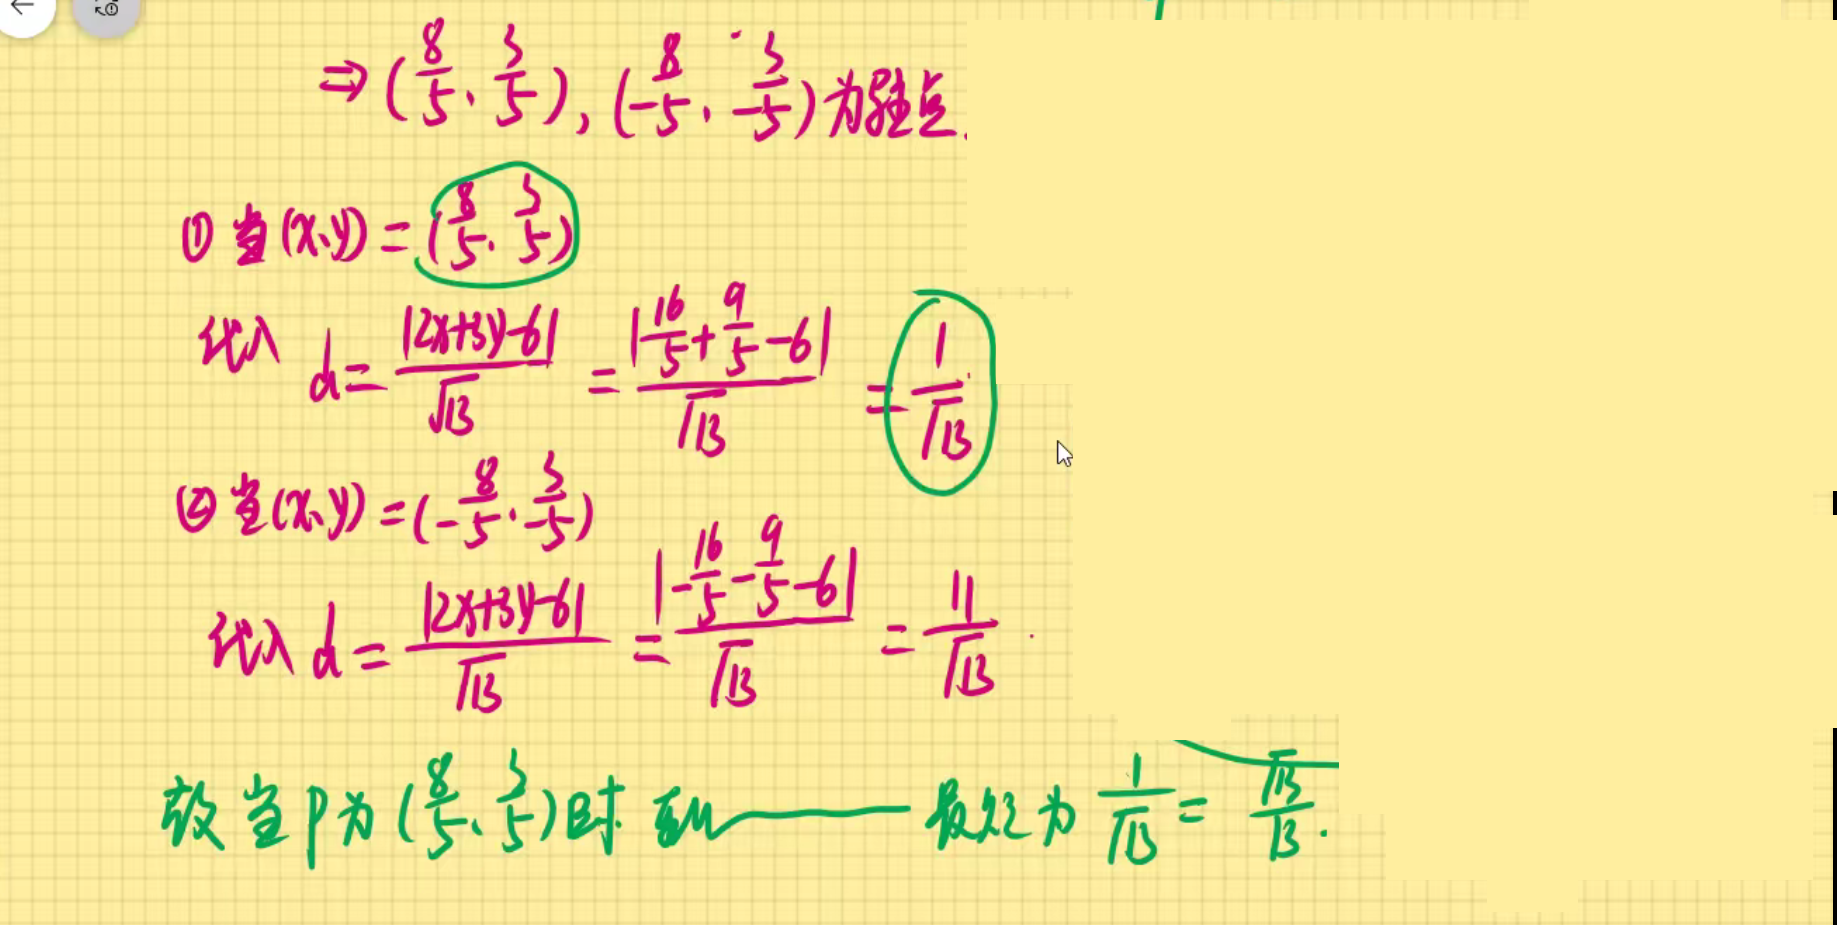 ⇒ (8/5、3/5), (8/-5、3/-5) 为驻点.
① 当(x、y) = (8/5、3/5)
代入 d = |2x+3y-6|/√13 = |16/5+9/5-6|/√13 = 1/√13
② 当(x、y) = (-8/5、3/-5)
代入 d = |2x+3y-6|/√13 = |-16/5-9/5-6|/√13 = 11/√13
故当P为(8/5、3/5)时 最短为 1/√13 = √13/13.